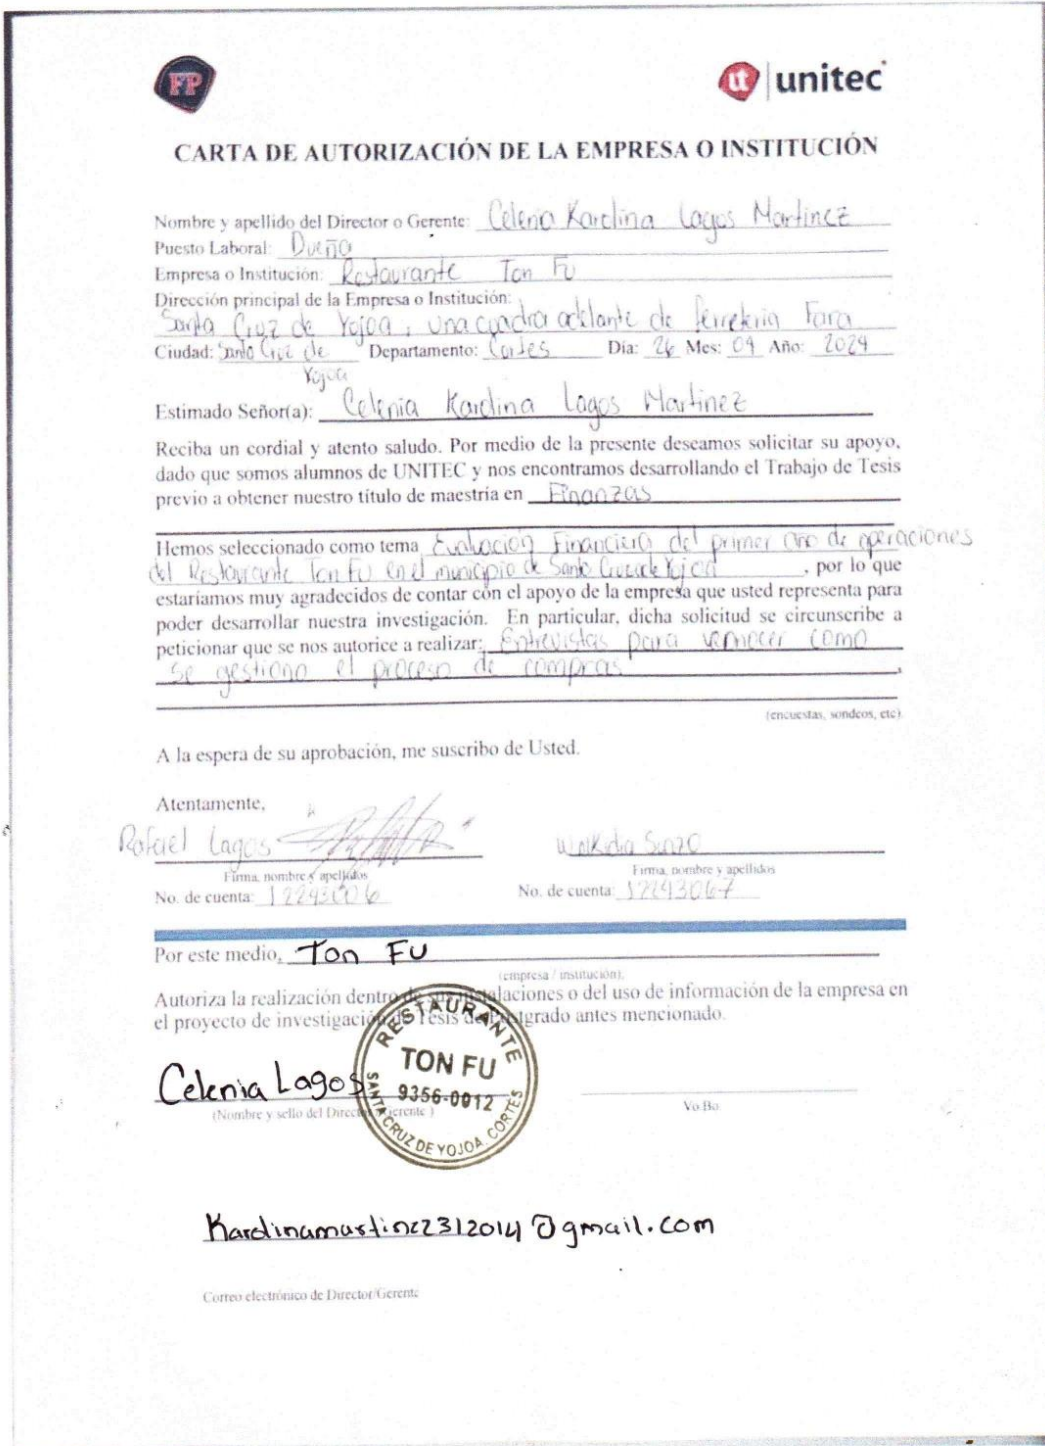 FP
ut unitec
CARTA DE AUTORIZACIÓN DE LA EMPRESA O INSTITUCIÓN
Nombre y apellido del Director o Gerente: Celenia Karolina Lagos Martinez
Puesto Laboral: Dueña
Empresa o Institución: Restaurante Ton Fu
Dirección principal de la Empresa o Institución:
Santa Cruz de Yojoa, una cuadra adelante de ferreteria Fara
Ciudad: Santa Cruz de Yojoa Departamento: Cortes Día: 26 Mes: 04 Año: 2024
Estimado Señor(a): Celenia Karolina Lagos Martinez
Reciba un cordial y atento saludo. Por medio de la presente deseamos solicitar su apoyo,
dado que somos alumnos de UNITEC y nos encontramos desarrollando el Trabajo de Tesis
previo a obtener nuestro título de maestría en Finanzas
Hemos seleccionado como tema Evaluación Financiera del primer año de operaciones
del Restaurante Ton Fu en el municipio de Santa Cruz de Yojoa, por lo que
estaríamos muy agradecidos de contar con el apoyo de la empresa que usted representa para
poder desarrollar nuestra investigación. En particular, dicha solicitud se circunscribe a
peticionar que se nos autorice a realizar: Entrevistas para como
se gestiono el proceso de compras
(encuestas, sondeos, etc)
A la espera de su aprobación, me suscribo de Usted.
Atentamente,
Rafael Lagos
Firma, nombre y apellidos
No. de cuenta: 12243006
Walkidia
Firma, nombre y apellidos
No. de cuenta: 12243067
Por este medio, Ton FU
(empresa / institución),
Autoriza la realización dentro de sus instalaciones o del uso de información de la empresa en
el proyecto de investigación de Tesis de Postgrado antes mencionado.
Celenia Lagos
(Nombre y sello del Director/Gerente)
RESTAURANTE
TON FU
9356-0012
SANTA CRUZ DE YOJOA, CORTÉS
Vo.Bo.
Karolinamartinez312014@gmail.com
Correo electrónico de Director/Gerente